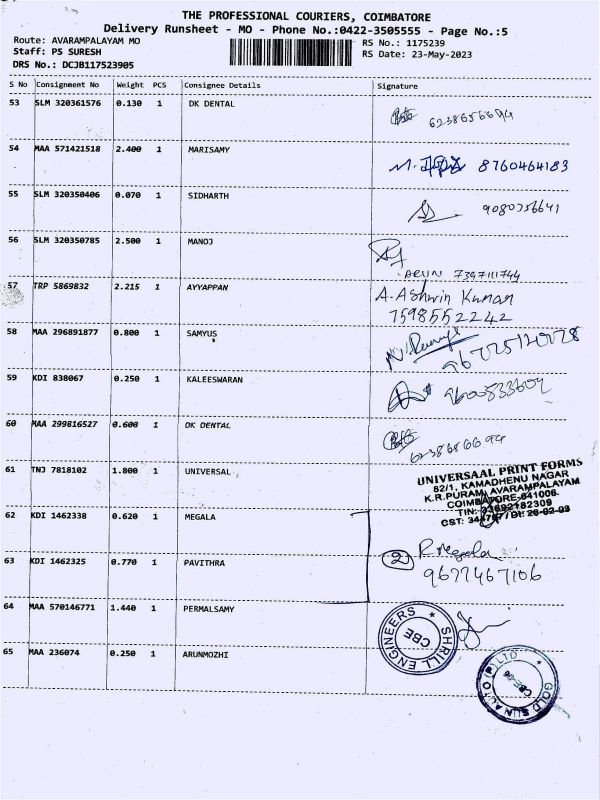 THE PROFESSIONAL COURIERS, COIMBATORE
Delivery Runsheet - MO - Phone No.:0422-3505555 - Page No.:5
Route: AVARAMPALAYAM MO
Staff: PS SURESH
DRS No.: DCJB117523905
RS No.: 1175239
RS Date: 23-May-2023
S No Consignment No Weight PCS Consignee Details Signature
53 SLM 320361576 0.130 1 DK DENTAL
54 MAA 571421518 2.400 1 MARISAMY 8760464183
55 SLM 320350406 0.070 1 SIDHARTH
56 SLM 320350785 2.500 1 MANOJ
ARUN 7397111744
57 TRP 5869832 2.215 1 AYYAPPAN A. Ashwin Kumar
7598552242
58 MAA 296891877 0.800 1 SAMYUS
59 KDI 838067 0.250 1 KALEESWARAN 9600533604
60 MAA 299816527 0.600 1 DK DENTAL
61 TNJ 7818102 1.800 1 UNIVERSAL
UNIVERSAAL PRINT FORMS
82/1, KAMADHENU NAGAR
K.R.PURAM, AVARAMPALAYAM
COIMBATORE-641006.
TIN: 33692182309
62 KDI 1462338 0.620 1 MEGALA
2 P. Megala
9677467106
63 KDI 1462325 0.770 1 PAVITHRA
64 MAA 570146771 1.440 1 PERMALSAMY
SHRILL ENGINEERS CBE
65 MAA 236074 0.250 1 ARUNMOZHI
GOLD SUN AUTO (P) LTD